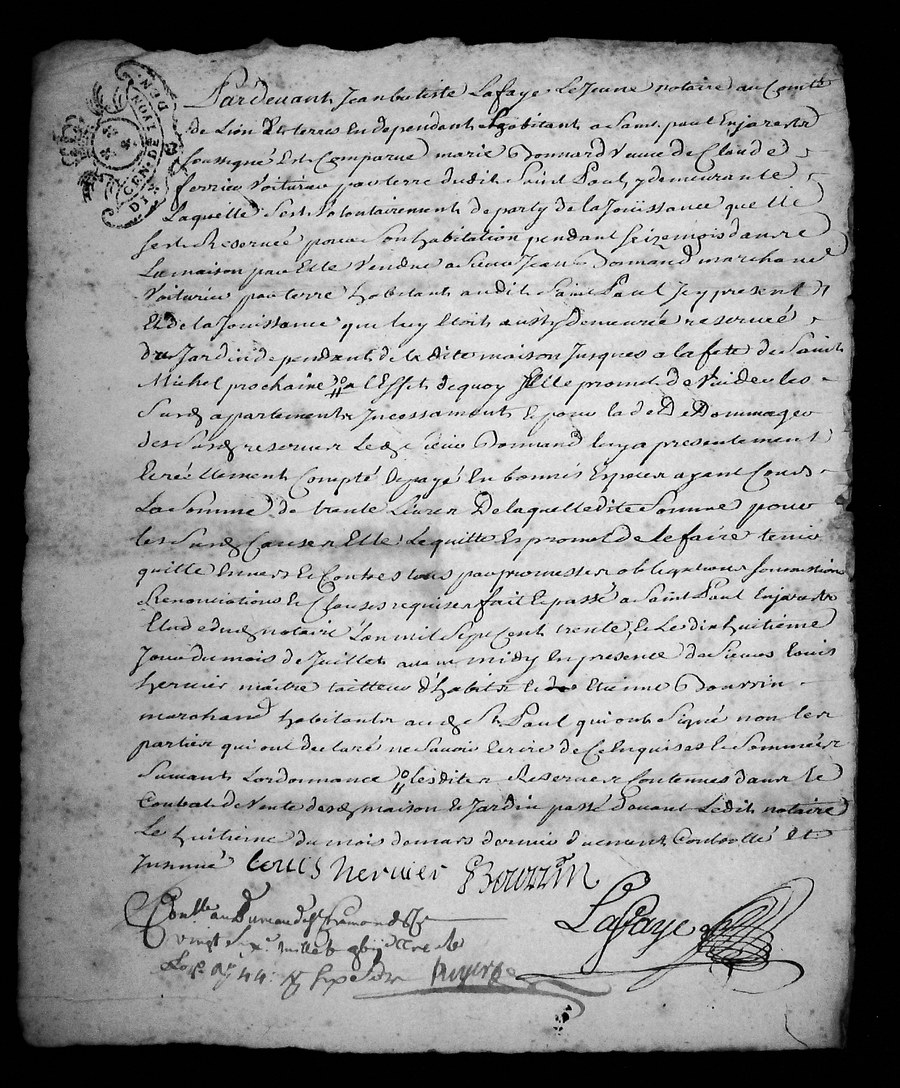 GEN. DE LYON
DIX DEN.
Pardevant Jean batiste Lafaye Le Jeune notaire au Comté
de Lion Et terres En dependants habitant a Saint paul Enjarests
soussigné Est Comparue marie Bonnard Veuve de Claude
ferrieu Voiturieu par terre dudit Saint Paul y demeurante
Laquelle sest Volontairement departy de la Joüissance quelle
sest Reservée pour Son habitation pendant seize mois dans
La maison par Elle Vendue a sieur Jean Bonnand marchand
Voiturieu par terre habitant audit Saint Paul Jcy present
Et de la Jouissance que luy Etoit aussy demeurée reservée
du Jardin dependant de ladite maison Jusques a la fete de Saint
Michel prochaine a l'Effet dequoy Elle promet de Vuider les
Susd apartements Jncessament Et pour la de Dommager
des Susd reserves Led sieur Bonnand luy a presentement
Et reellement Compté Et payé En bonnes Especes ayant Cours
La Somme de trente Livres De laquelle dite Somme pour
les Susd Causes Elle Le quitte Et promet de le faire tenir
quitte Envers Et Contres tous par promesses obligations soumissions
Renonciations Et Clauses requises fait Et passé a Saint Paul Enjarests
Etude dud notaire L'an mil Sept Cent trente Et Le dix huitieme
Jour du mois de Juillet avant midy En presence de Sieurs Louis
hervier maitre tailleur d'habits Et de Etienne Boursin
marchand habitants aud St Paul qui ont Signé non les
parties qui ont declaré ne Savoir Ecrire de Ce Enquises Et Sommées
Suivant L'ordonnance lesdites Reserves Contenues dans le
Contrat de Vente desd maison Et Jardin passé devant Ledit notaire
Le huitieme du mois de mars dernier duement Controllé Et
Jnsinué Louis hervier Bourzin
Conllé au Bureau de St
vingt Six Juillet
Lafaye